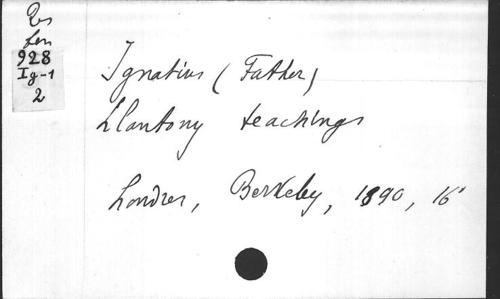 Res
Len
928
Ig-1
2
Ignatius (Father)
Llantony teachings
Londres, Berkeley, 1890, 16°